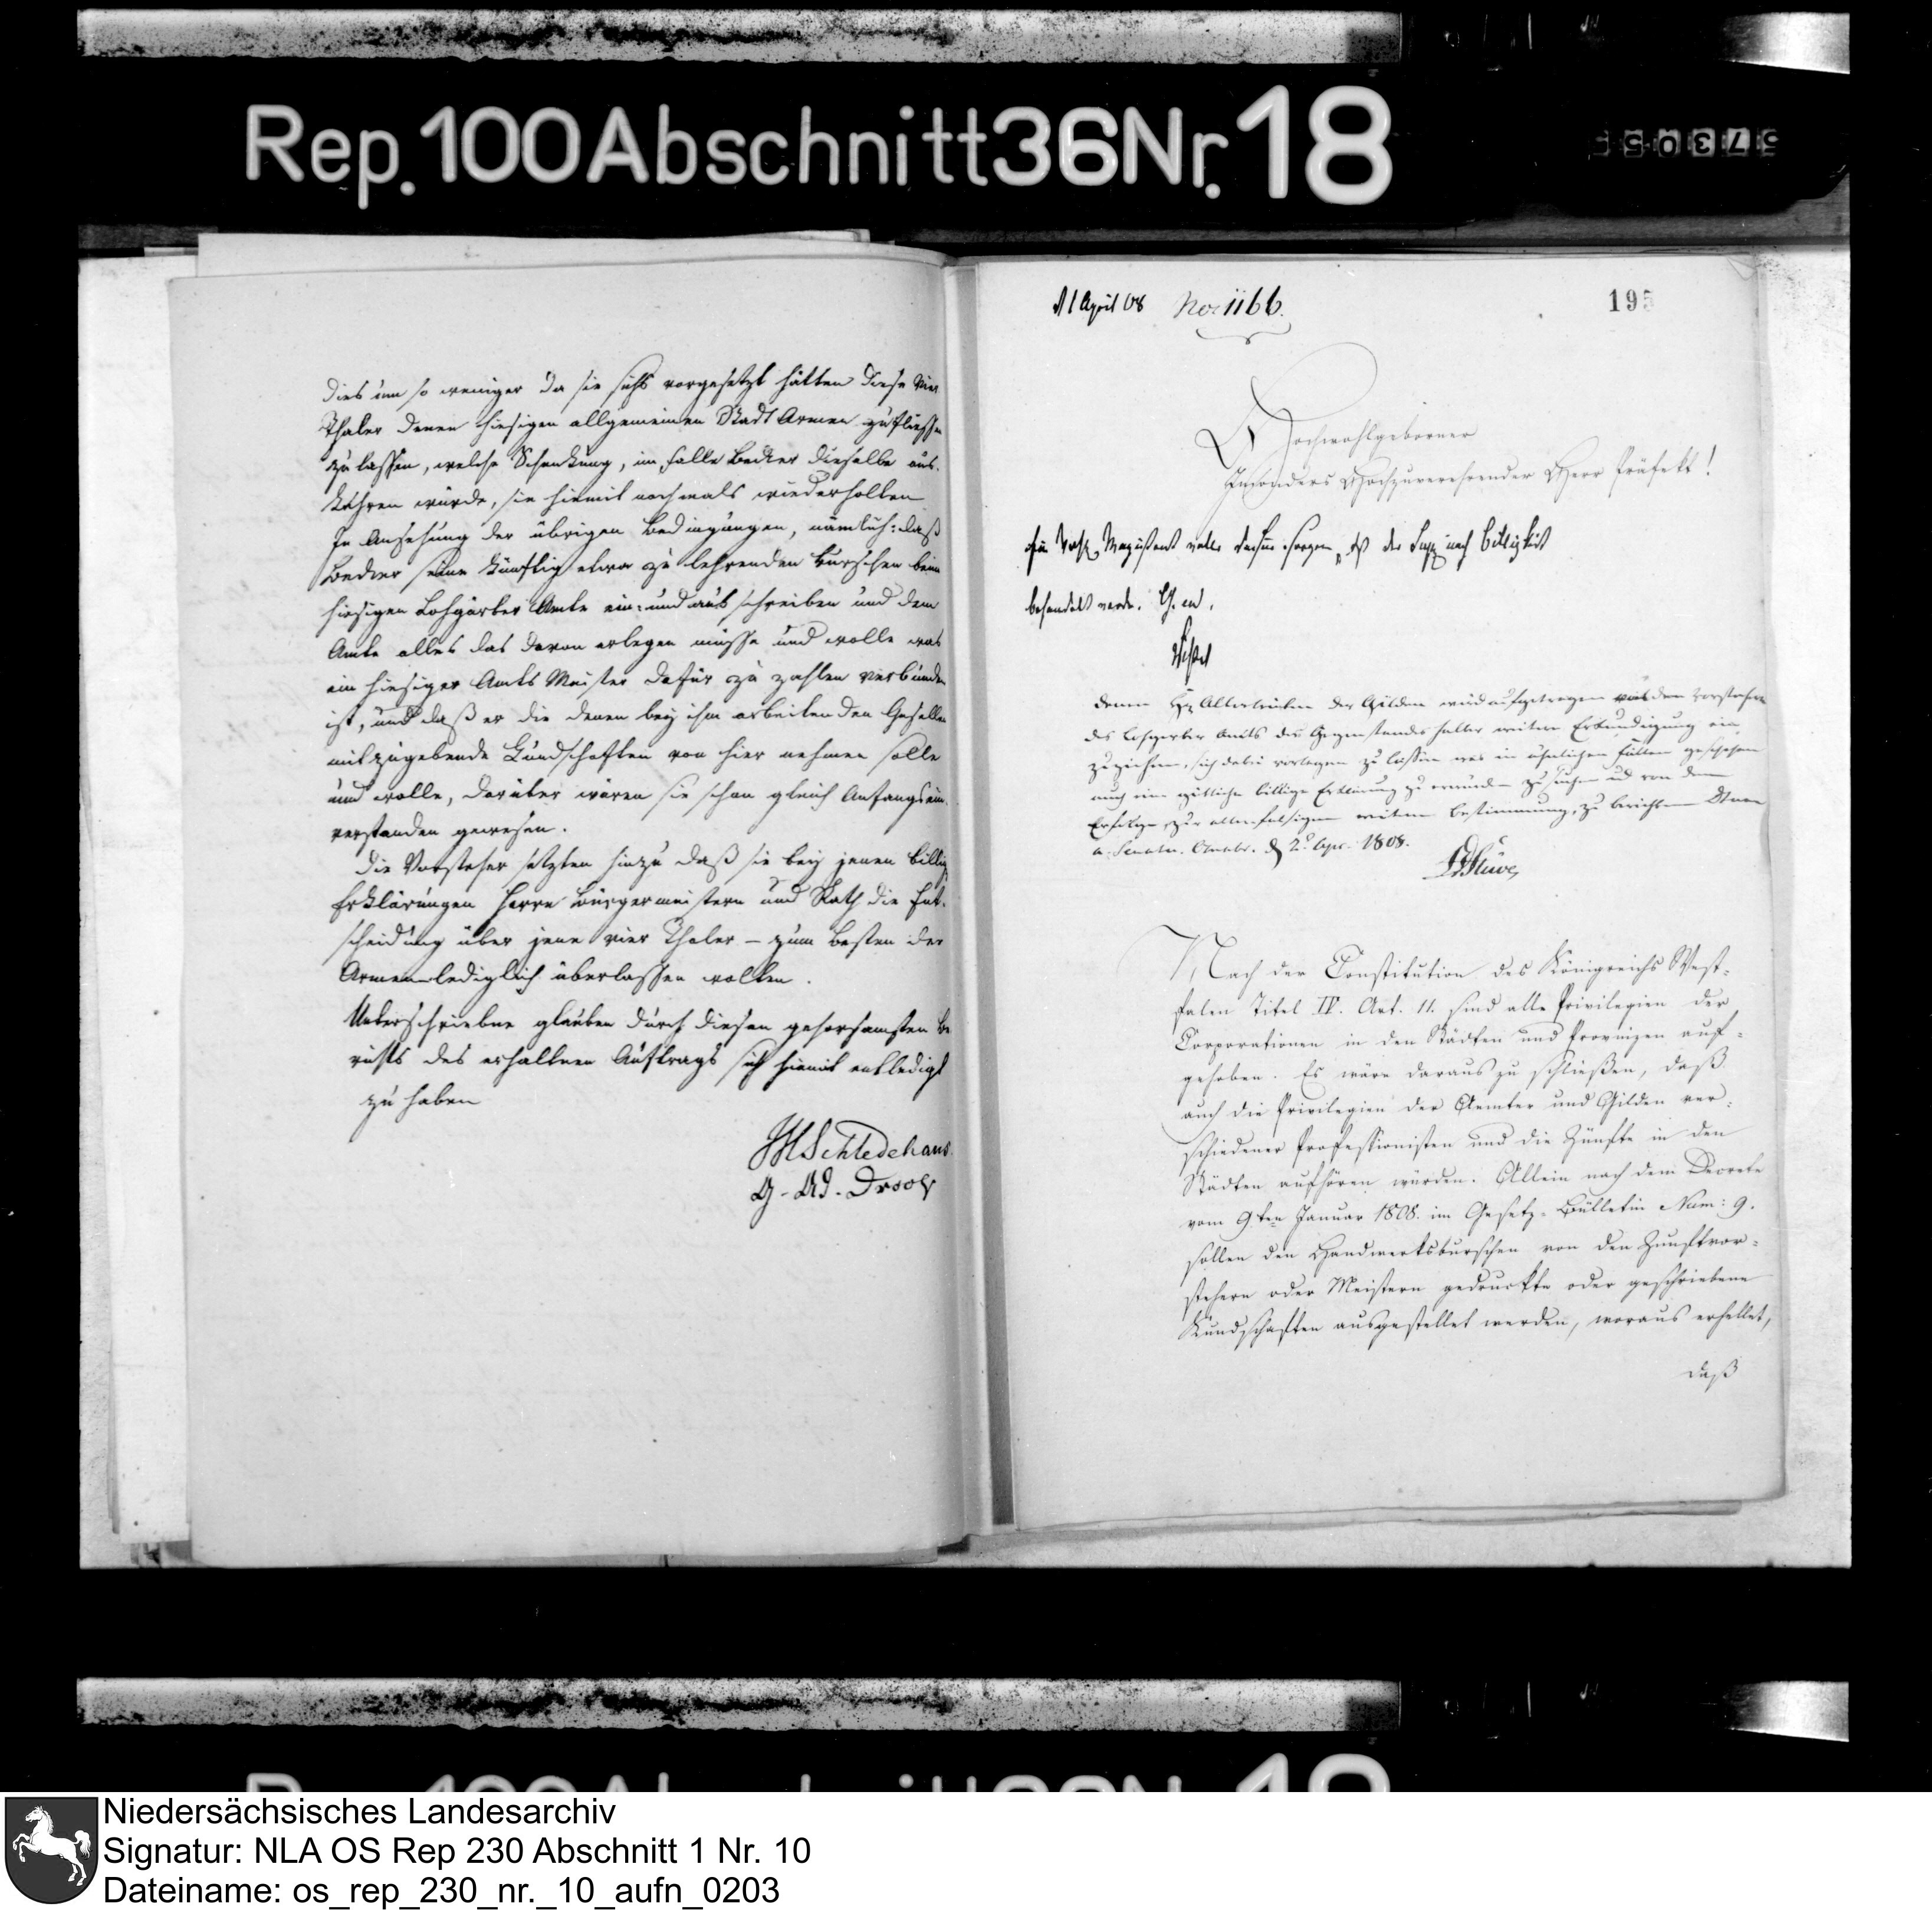 Rep. 100 Abschnitt 36 Nr. 18
dies um so weniger da sie sichs vorgesetzt hätten diese vier
Thaler denen hiesigen allgemeinen Stadt Armen zufließen
zu lassen, welche Schenkung, im Falle Becker dieselbe aus-
kehren würde, sie hiemit nochmals wiederholten
In Ansehung der übrigen Bedingungen, nämlich: daß
Becker seine künftig etwa zu lehrenden Burschen beim
hiesigen Lohgärber Amte ein- und aus schreiben und dem
Amte alles das davon erlegen müsse und wolle was
ein hiesiger Amts Meister dafür zu zahlen verbunden
ist, und daß er die denen bey ihm arbeitenden Gesellen
mitzugebende Kundschaften von hier nehmen solle
und wolle, darüber wären sie schon gleich Anfangs ein-
verstanden gewesen.
Die Vorsteher setzten hinzu daß sie bey jenen billigen
Erklärungen Herrn Bürgermeistern und Rath die Ent-
scheidung über jene vier Thaler – zum Besten der
Armen lediglich überlassen wollten.
Unterschriebne glauben durch diesen gehorsamsten Be
richts des erhaltnen Auftrags sich hiemit entledigt
zu haben
JHSchledehaus
G. Ad. Droop
1 April 08 No: 1166.
195
Hochwohlgeborner
Insonders Hochzuverehrender Herr Präfekt!
Magistrat wolle dafür sorgen, daß der nach Billigkeit
behandelt werde.
denen Alterleuten der Gilden wird aufgetragen von den Vorstehern
des Lohgerber Amts des Gegenstandes halber weitere Erkundigung ein
zuziehen, sich dabei vorlegen zu lassen was in ähnlichen Fällen geschehen
auch eine gütliche billige Erklärung zu suchen und von dem
Erfolge, zur allenfalsigen weitern Bestimmung, zu berichten
1808.
Stüve
Nach der Constitution des Königreichs West-
falen Titel IV. Art. 11. sind alle Privilegien der
Corporationen in den Städten und Provinzen auf-
gehoben. Es wäre daraus zu schließen, daß
auch die Privilegien der Aemter und Gilden ver-
schiedener Professionisten und die Zünfte in den
Städten aufhören würden. Allein nach dem Decrete
vom 9ten Januar 1808. im Gesetz-Bülletin Num: 9.
sollen den Handwerksburschen von den Zunftvor-
stehern oder Meistern gedruckte oder geschriebene
Kundschaften ausgestellet werden, woraus erhellet,
daß
Niedersächsisches Landesarchiv
Signatur: NLA OS Rep 230 Abschnitt 1 Nr. 10
Dateiname: os_rep_230_nr._10_aufn_0203